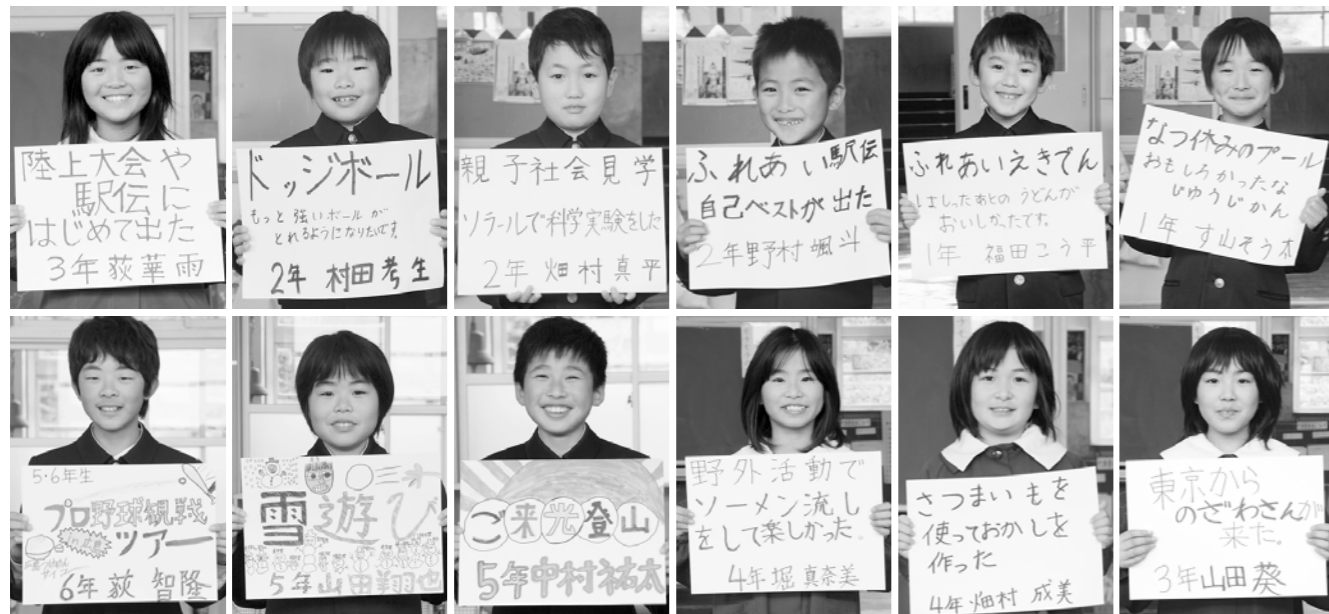 陸上大会や
駅伝に
はじめて出た
3年荻華雨
ドッジボール
もっと強いボールが
とれるようになりたいです。
2年 村田考生
親子社会見学
ソラールで科学実験をした
2年 畑村真平
ふれあい駅伝
自己ベストが出た
2年野村颯斗
ふれあいえきでん
はしったあとのうどんが
おいしかったです。
1年 福田こう平
なつ休みのプール
おもしろかったな
じゆうじかん
1年 す山そう太
5・6年生
プロ野球観戦
ツアー
6年 荻 智隆
雪遊び
5年山田翔也
ご来光登山
5年中村祐太
野外活動で
ソーメン流し
をして楽しかった。
4年堀真奈美
さつまいもを
使っておかしを
作った
4年畑村 成美
東京から
のざわさんが
来た。
3年山田葵